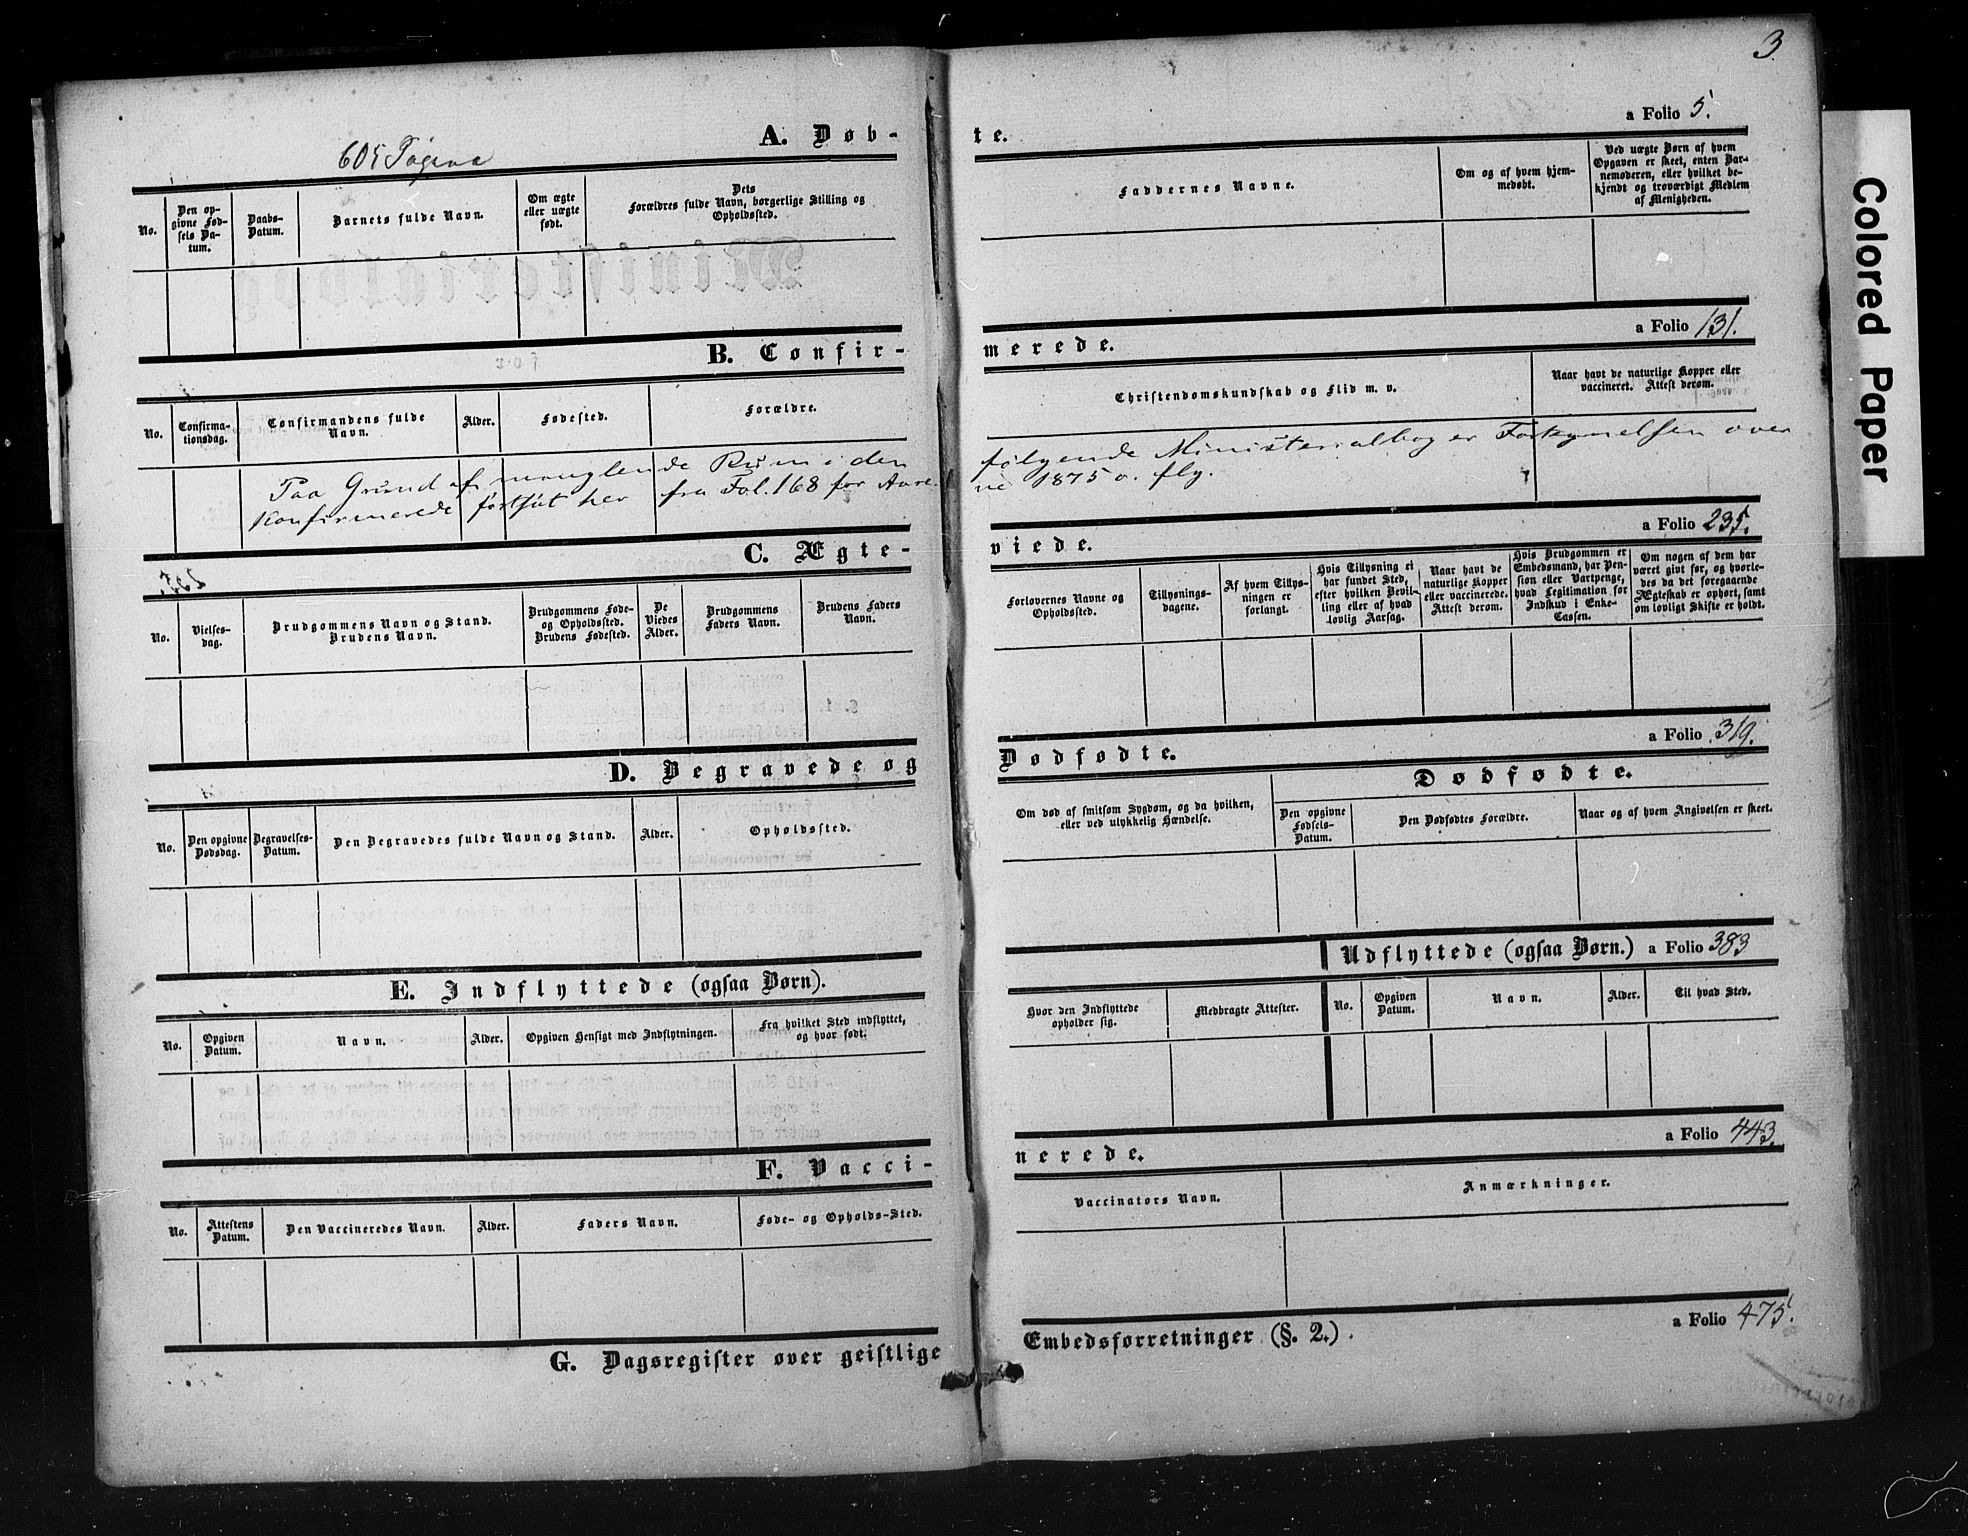 3.
605 Pagina
A. Døb-
te.
a Folio 5.
No.
Den op-
givne Fød-
sels Da-
tum.
Daabs-
Datum.
Barnets fulde Navn.
Om ægte
eller uægte
født.
Dets
Forældres fulde Navn, borgerlige Stilling og
Opholdssted.
Faddernes Navne.
Om og af hvem hjem-
medøbt.
Ved uægte Børn af hvem
Opgaven er skeet, enten Bar-
nemoderen, eller hvilket be-
kjendt og troværdigt Medlem
af Menigheden.
B. Confir-
merede.
a Folio 131.
No.
Confirma-
tionsdag.
Confirmandens fulde
Navn.
Alder.
Fødested.
Forældre.
Christendomskundskab og Flid m. v.
Naar havt de naturlige Kopper eller
vaccineret. Attest derom.
Paa Grund af manglende Rum i den følgende Ministerialbog er Forkyndelsen over
Konfirmerede fortsat her fra Fol. 168 for Aarene 1875 o. flg.
C. Ægte-
viede.
a Folio 235.
No.
Vielses-
dag.
Brudgommens Navn og Stand.
Brudens Navn.
Brudgommens Føde-
og Opholdssted.
Brudens Fødested.
De
Viedes
Alder.
Brudgommens
Faders Navn.
Brudens Faders
Navn.
Forlovernes Navne og
Opholdssted.
Tillysnings-
dagene.
Af hvem Tillys-
ningen er
forlangt.
Hvis Tillysning ei
har fundet Sted,
efter hvilken Bevil-
ling eller af hvad
lovlig Aarsag.
Naar havt de
naturlige Kopper
eller vaccinerede.
Attest derom.
Hvis Brudgommen er
Embedsmand, har Pen-
sion eller Vartpenge,
hvad Legitimation for
Indskud i Enke-
Cassen.
Om nogen af dem har
været givt før, og hvorle-
des da det foregaaende
Ægteskab er ophørt, samt
om lovligt Skifte er holdt.
D. Begravede og
Dødfødte.
a Folio 319.
No.
Den opgivne
Dødsdag.
Begravelses-
Datum.
Den Begravedes fulde Navn og Stand.
Alder.
Opholdssted.
Om død af smitsom Sygdom, og da hvilken,
eller ved ulykkelig Hændelse.
Dødfødte.
Den opgivne
Fødsels-
Datum.
Den Dødfødtes Forældre.
Naar og af hvem Angivelsen er skeet.
E. Indflyttede (ogsaa Børn).
Udflyttede (ogsaa Børn.) a Folio 383
No.
Opgiven
Datum.
Navn.
Alder.
Opgiven Hensigt med Indflytningen.
Fra hvilket Sted indflyttet,
og hvor født.
Hvor den Indflyttede
opholder sig.
Medbragte Attester.
No.
Opgiven
Datum.
Navn.
Alder.
Til hvad Sted.
F. Vacci-
nerede.
a Folio 443.
No.
Attestens
Datum.
Den Vaccineredes Navn.
Alder.
Faders Navn.
Føde- og Opholds-Sted.
Vaccinators Navn.
Anmærkninger.
G. Dagsregister over geistlige
Embedsforretninger (§. 2.).
a Folio 475.
Colored Paper